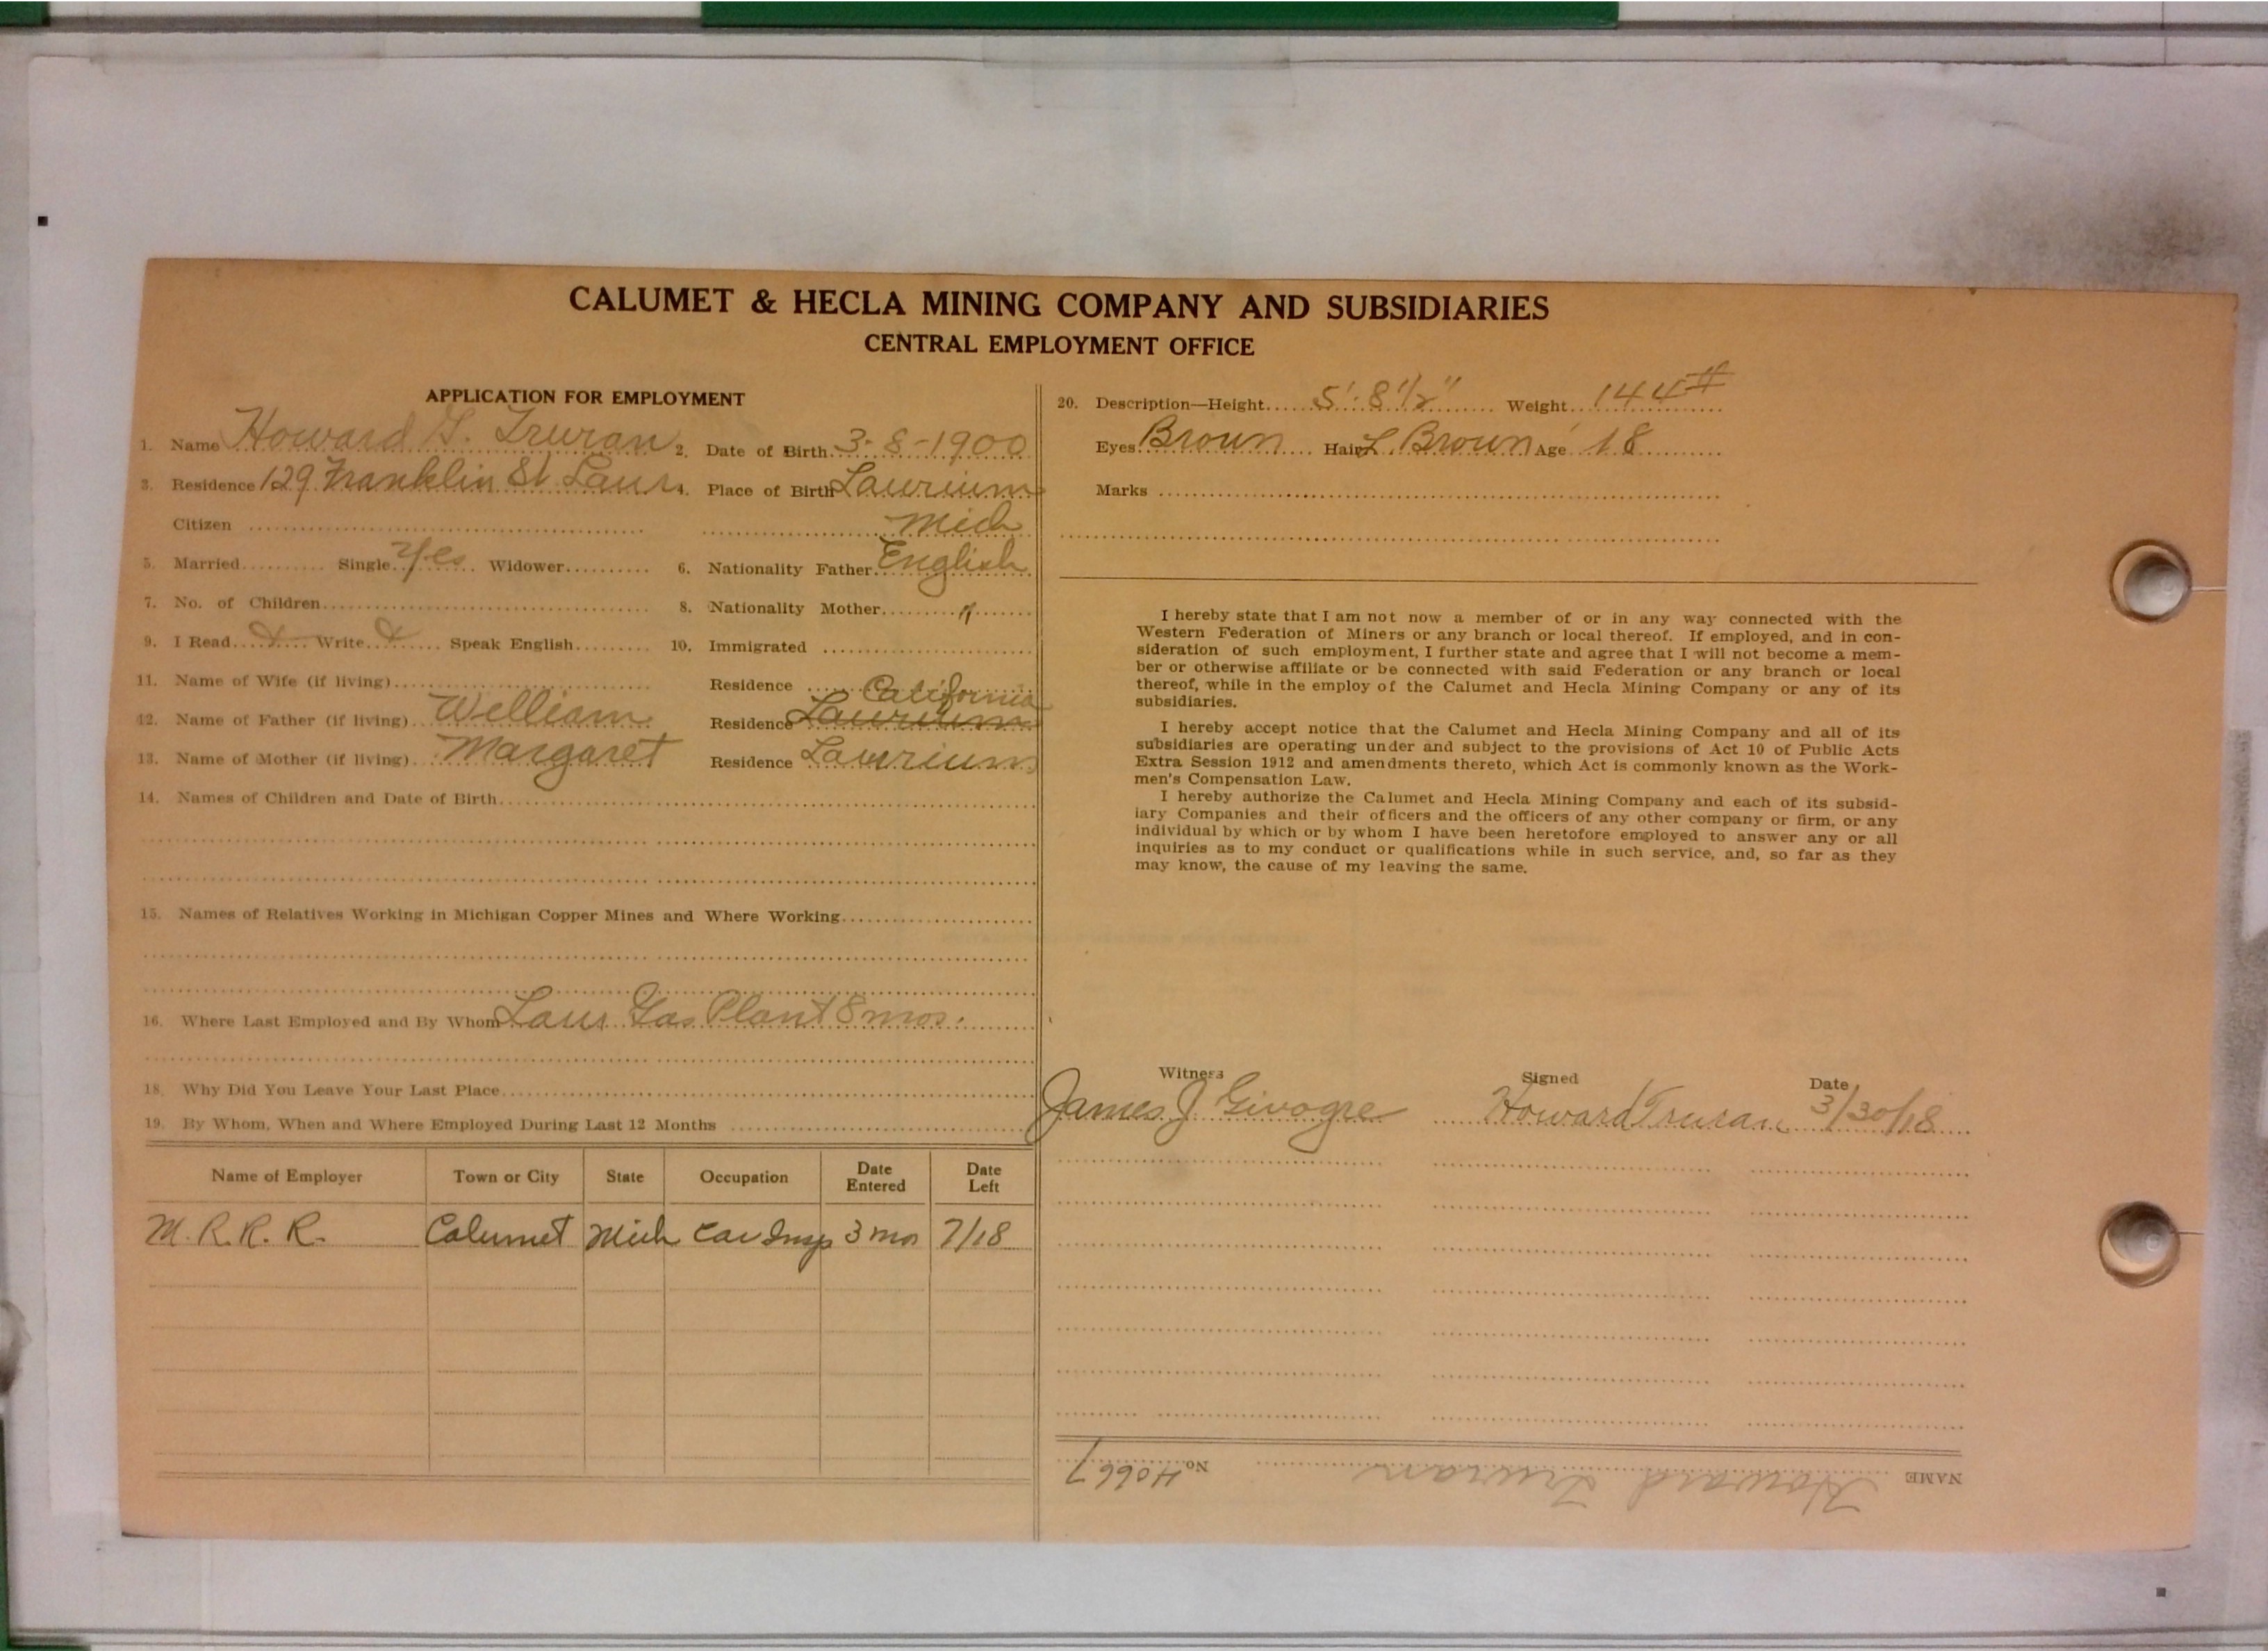 CALUMET & HECLA MINING COMPANY AND SUBSIDIARIES
CENTRAL EMPLOYMENT OFFICE
APPLICATION FOR EMPLOYMENT
1. Name Howard G. Truran 2. Date of Birth 3-8-1900
3. Residence 129 Franklin St Laur 4. Place of Birth Laurium
Citizen Mich
5. Married Single Yes Widower 6. Nationality Father English
7. No. of Children 8. Nationality Mother "
9. I Read Write Speak English 10. Immigrated
11. Name of Wife (if living) Residence
California
12. Name of Father (if living) William Residence Laurium
13. Name of Mother (if living) Margaret Residence Laurium
14. Names of Children and Date of Birth
15. Names of Relatives Working in Michigan Copper Mines and Where Working
16. Where Last Employed and By Whom Laur Gas Plant 8 mos.
18. Why Did You Leave Your Last Place
19. By Whom, When and Where Employed During Last 12 Months
Name of Employer Town or City State Occupation Date Entered Date Left
M. R. R. R. Calumet Mich Car Insp 3 mos 7/18
20. Description—Height 5' 8 1/2" Weight 144#
Eyes Brown Hair L. Brown Age 18
Marks
I hereby state that I am not now a member of or in any way connected with the
Western Federation of Miners or any branch or local thereof. If employed, and in con-
sideration of such employment, I further state and agree that I will not become a mem-
ber or otherwise affiliate or be connected with said Federation or any branch or local
thereof, while in the employ of the Calumet and Hecla Mining Company or any of its
subsidiaries.
I hereby accept notice that the Calumet and Hecla Mining Company and all of its
subsidiaries are operating under and subject to the provisions of Act 10 of Public Acts
Extra Session 1912 and amendments thereto, which Act is commonly known as the Work-
men's Compensation Law.
I hereby authorize the Calumet and Hecla Mining Company and each of its subsid-
iary Companies and their officers and the officers of any other company or firm, or any
individual by which or by whom I have been heretofore employed to answer any or all
inquiries as to my conduct or qualifications while in such service, and, so far as they
may know, the cause of my leaving the same.
Witness Signed Date
James J. Howard Truran 3/30/18
NAME Howard Truran No. H0667